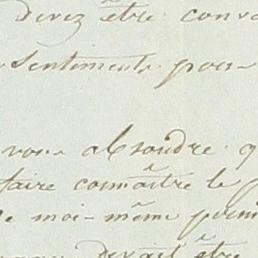 devez être conv
sentiments pour
vous absoudre q
faire connaître le p
e moi-même
devait être